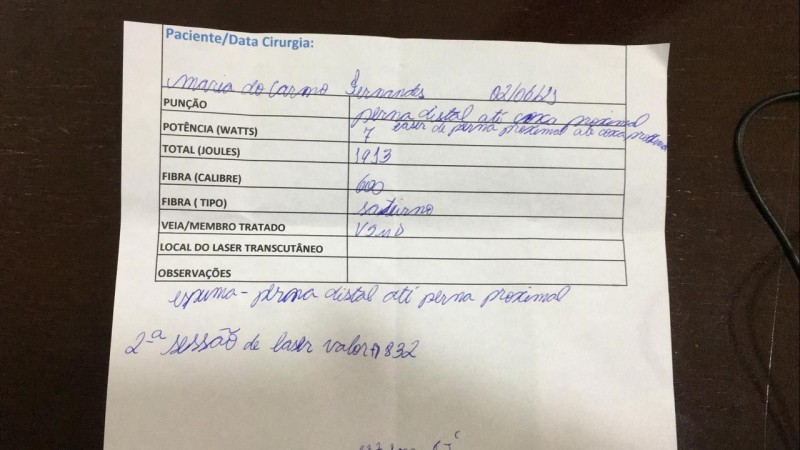 Paciente/Data Cirurgia:
Maria do Carmo Fernandes 02/06/25
PUNÇÃO perna distal até coxa proximal
POTÊNCIA (WATTS) 7 laser de perna proximal até coxa proximal
TOTAL (JOULES) 1913
FIBRA (CALIBRE) 600
FIBRA ( TIPO) saturno
VEIA/MEMBRO TRATADO
LOCAL DO LASER TRANSCUTÂNEO
OBSERVAÇÕES
espuma - perna distal até perna proximal
2ª sessão de laser valor 832